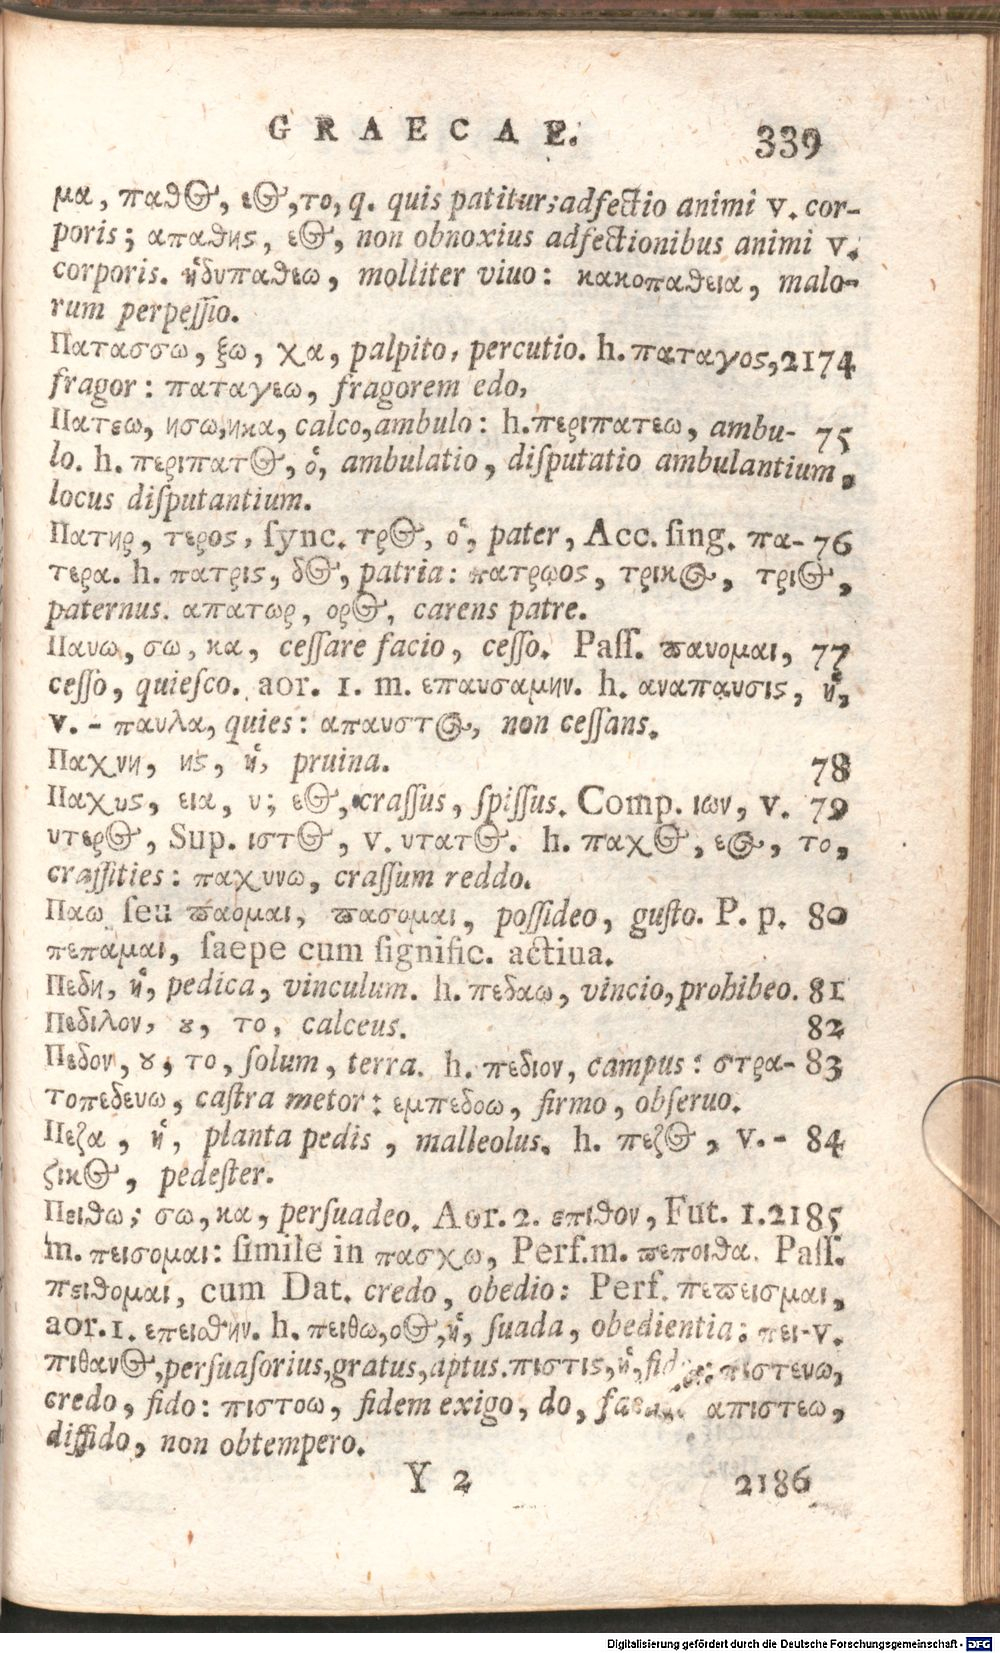 GRAECAE. 339
μα, παθος, εος, το, q. quis patitur; adfectio animi v. cor-
poris; απαθης, εος, non obnoxius adfectionibus animi v.
corporis. ἡδυπαθεω, molliter viuo: κακοπαθεια, malo-
rum perpeſſio.
Πατασσω, ξω, χα, palpito, percutio. h. παταγος, 2174
fragor: παταγεω, fragorem edo,
Πατεω, ησω, ηκα, calco, ambulo: h. περιπατεω, ambu- 75
lo. h. περιπατος, ὁ, ambulatio, diſputatio ambulantium,
locus diſputantium.
Πατηρ, τερος, ſync. τρος, ὁ, pater, Acc. ſing. πα- 76
τερα. h. πατρις, δος, patria: πατρῳος, τρικος, τριος,
paternus. απατωρ, ορος, carens patre.
Παυω, σω, κα, ceſſare facio, ceſſo. Paſſ. ϖαυομαι, 77
ceſſo, quieſco. aor. 1. m. επαυσαμην. h. αναπαυσις, ἡ,
v. - παυλα, quies: απαυστος, non ceſſans.
Παχνη, ης, ἡ, pruina. 78
Παχυς, εια, υ; εος, craſſus, ſpiſſus. Comp. ιων, v. 79
υτερος, Sup. ιστος, v. υτατος. h. παχος, εος, το,
craſſities: παχυνω, craſſum reddo.
Παω ſeu ϖαομαι, ϖασομαι, poſſideo, guſto. P. p. 80
πεπαμαι, ſaepe cum ſignific. actiua.
Πεδη, ἡ, pedica, vinculum. h. πεδαω, vincio, prohibeo. 81
Πεδιλον, ȣ, το, calceus. 82
Πεδον, ȣ, το, ſolum, terra. h. πεδιον, campus: στρα- 83
τοπεδευω, caſtra metor: εμπεδοω, firmo, obſeruo.
Πεζα, ἡ, planta pedis, malleolus. h. πεζος, v. - 84
ζικος, pedeſter.
Πειθω; σω, κα, perſuadeo. Aor. 2. επιθον, Fut. 1. 2185
m. πεισομαι: ſimile in πασχω, Perf. m. ϖεποιθα. Paſſ.
πειθομαι, cum Dat. credo, obedio: Perf. πεϖεισμαι,
aor. 1. επεισθην. h. πειθω, οος, ἡ, ſuada, obedientia: πει- v.
πιθανος, perſuaſorius, gratus, aptus. πιστις, ἡ, πιστευω,
credo, fido: πιστοω, fidem exigo, do, απιστεω,
diffido, non obtempero.
Y 2 2186
Digitalisierung gefördert durch die Deutsche Forschungsgemeinschaft - DFG